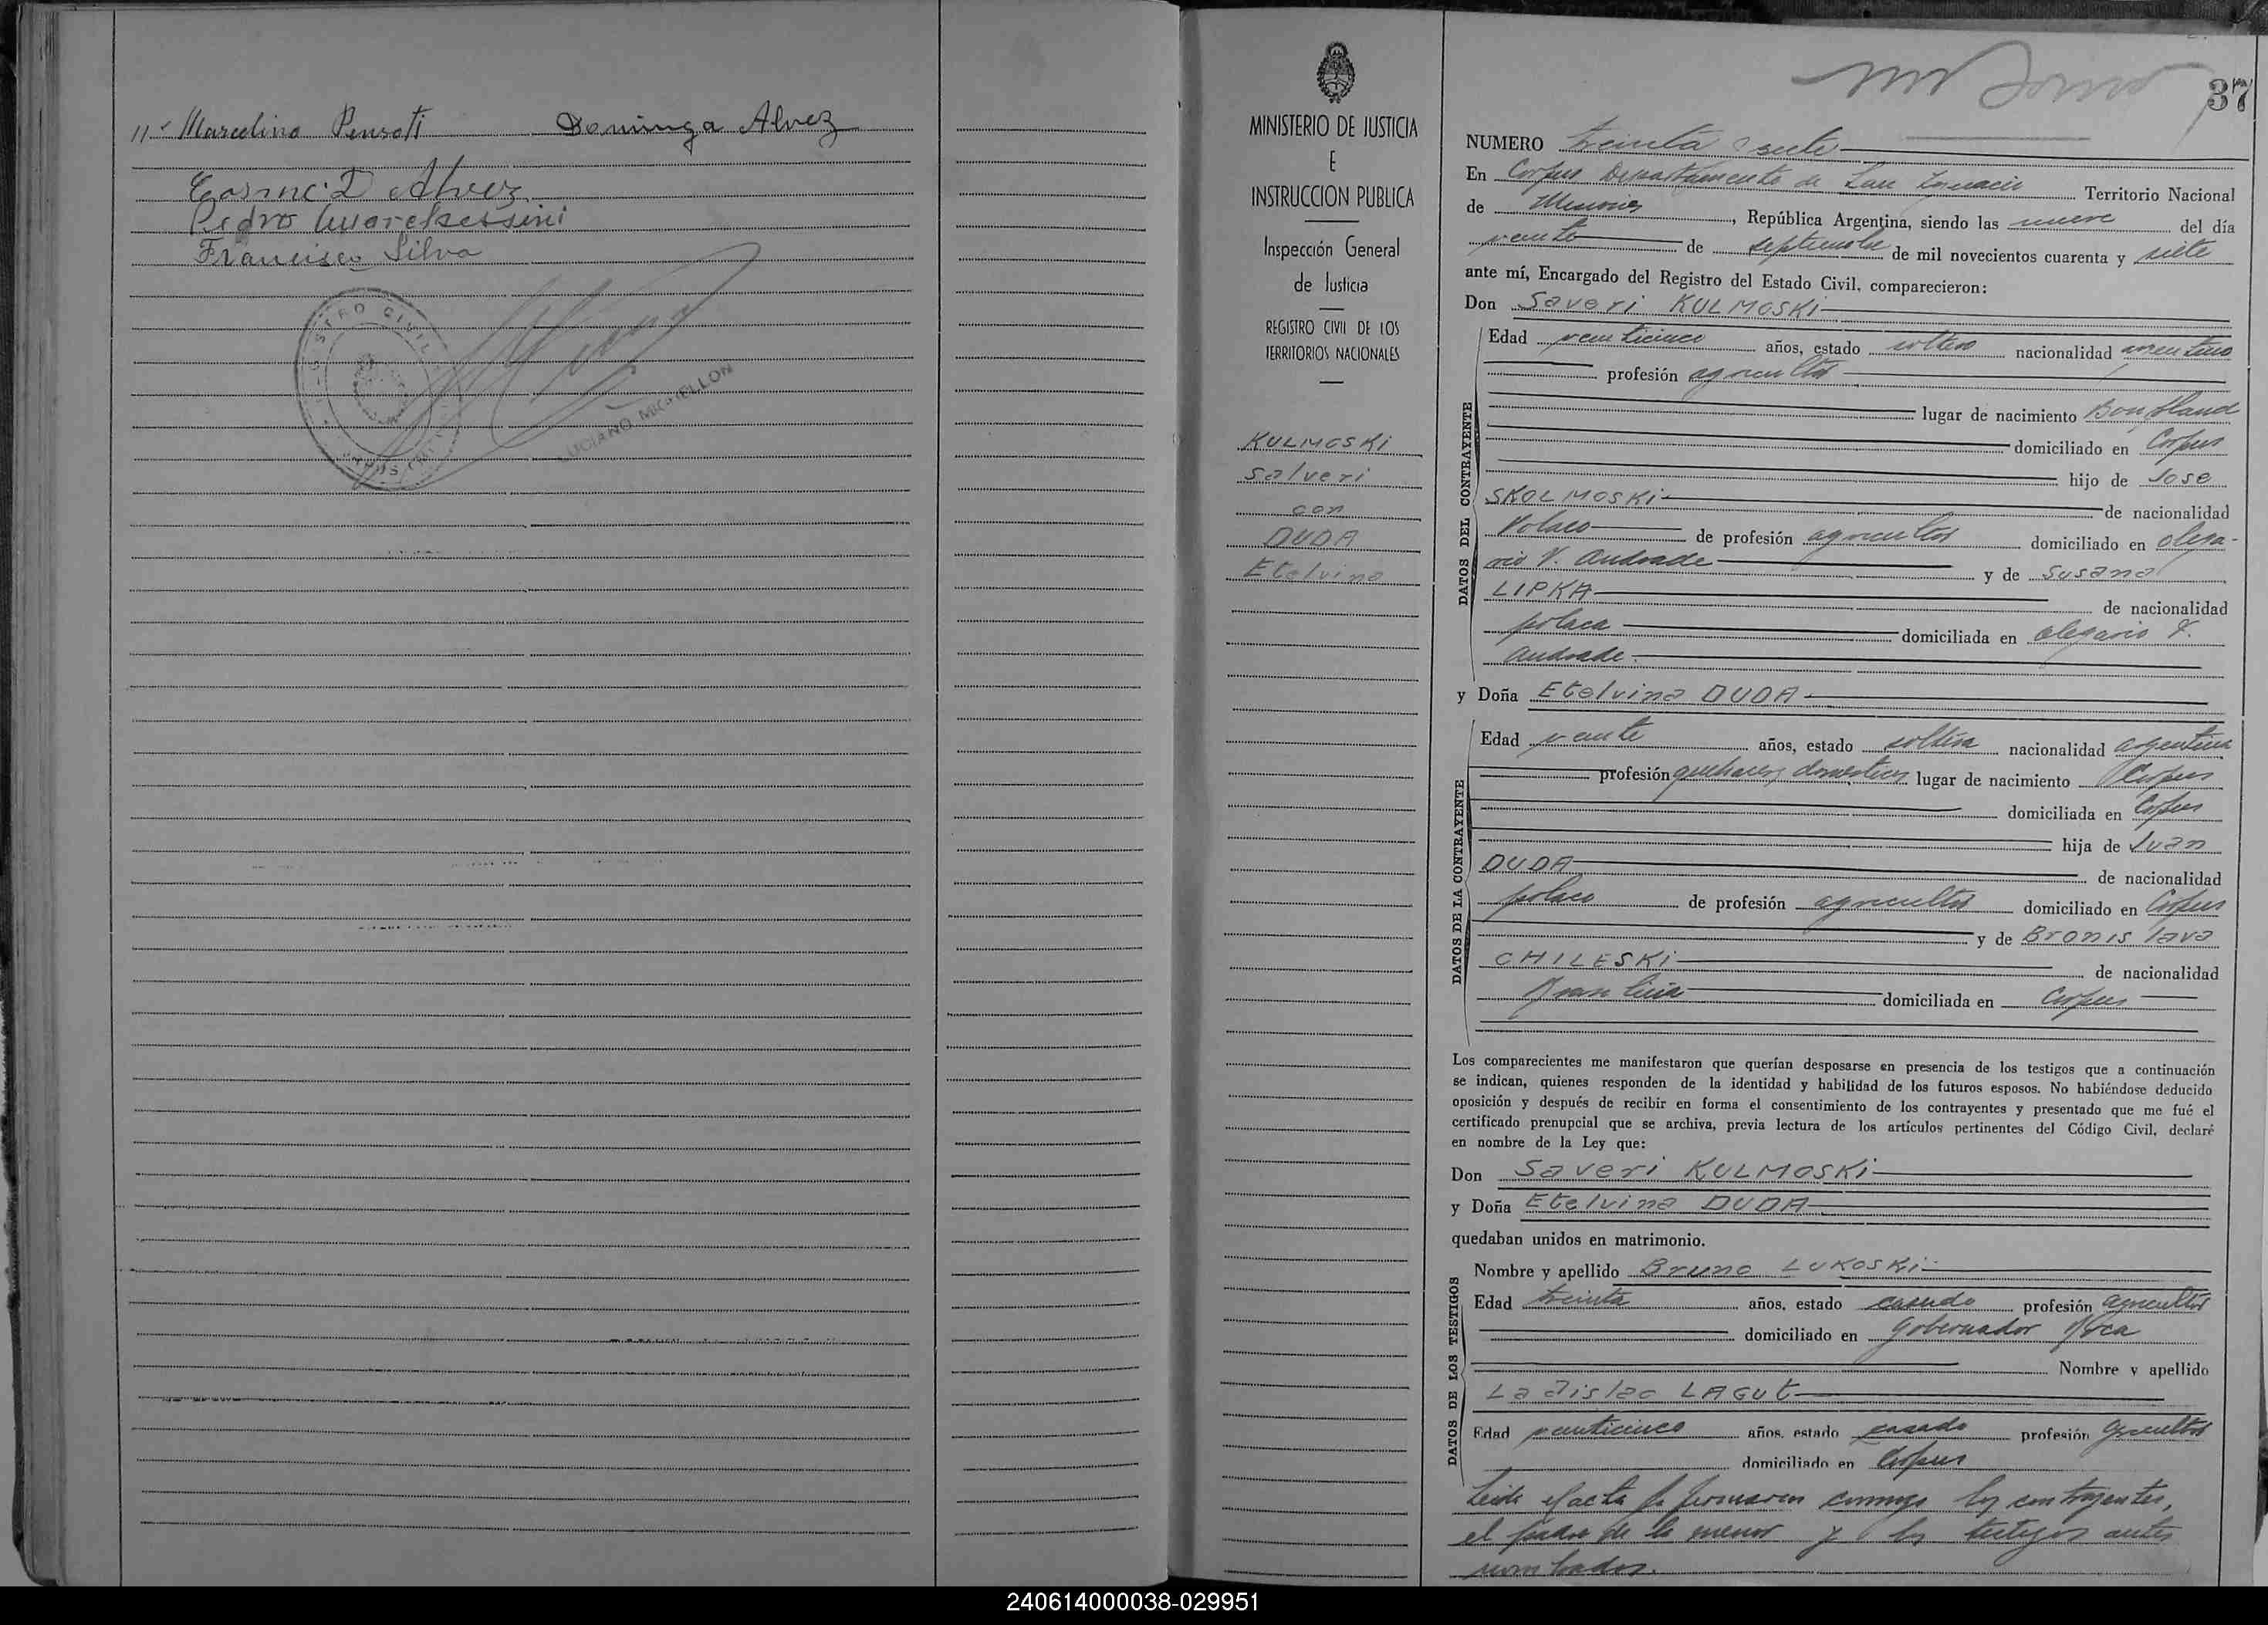 Marcelino Pensoti Dominga Alvez
Cosme D Alvez
Pedro
Francisco Silva
REGISTRO CIVIL
LUCIANO MICHELLON
MINISTERIO DE JUSTICIA
E
INSTRUCCION PUBLICA
Inspección General
de Justicia
REGISTRO CIVIL DE LOS
TERRITORIOS NACIONALES
KULMOSKI
Salveri
con
DUDA
Etelvina
37
NUMERO treinta y siete
En Corpus Departamento de San Ignacio Territorio Nacional
de Misiones, República Argentina, siendo las nueve del día
veinte de septiembre de mil novecientos cuarenta y siete
ante mí, Encargado del Registro del Estado Civil, comparecieron:
Don Saveri KULMOSKI
DATOS DEL CONTRAYENTE
Edad veinticinco años, estado soltero nacionalidad argentino
profesión agricultor
lugar de nacimiento Bompland
domiciliado en Corpus
hijo de Jose
SKOLMOSKI de nacionalidad
Polaco de profesión agricultor domiciliado en Olega-
rio V. Andrade y de Susana
LIPKA de nacionalidad
polaca domiciliada en Olegario V.
Andrade.
y Doña Etelvina DUDA
DATOS DE LA CONTRAYENTE
Edad veinte años, estado soltera nacionalidad argentina
profesión quehaceres domesticos lugar de nacimiento Corpus
domiciliada en Corpus
hija de Juan
DUDA de nacionalidad
polaco de profesión agricultor domiciliado en Corpus
y de Bronislava
CHILESKI de nacionalidad
domiciliada en Corpus
Los comparecientes me manifestaron que querían desposarse en presencia de los testigos que a continuación
se indican, quienes responden de la identidad y habilidad de los futuros esposos. No habiéndose deducido
oposición y después de recibir en forma el consentimiento de los contrayentes y presentado que me fué el
certificado prenupcial que se archiva, previa lectura de los artículos pertinentes del Código Civil, declaré
en nombre de la Ley que:
Don Saveri KULMOSKI
y Doña Etelvina DUDA
quedaban unidos en matrimonio.
DATOS DE LOS TESTIGOS
Nombre y apellido Bruno LUKOSKI
Edad treinta años, estado casado profesión agricultor
domiciliado en Gobernador Roca
Nombre y apellido
Ladislao LAGUT
Edad veinticinco años, estado casado profesión agricultor
domiciliado en Corpus
Leida el acta la firmaron conmigo los contrayentes,
el padre de la menor y los testigos antes
nombrados.
240614000038-029951